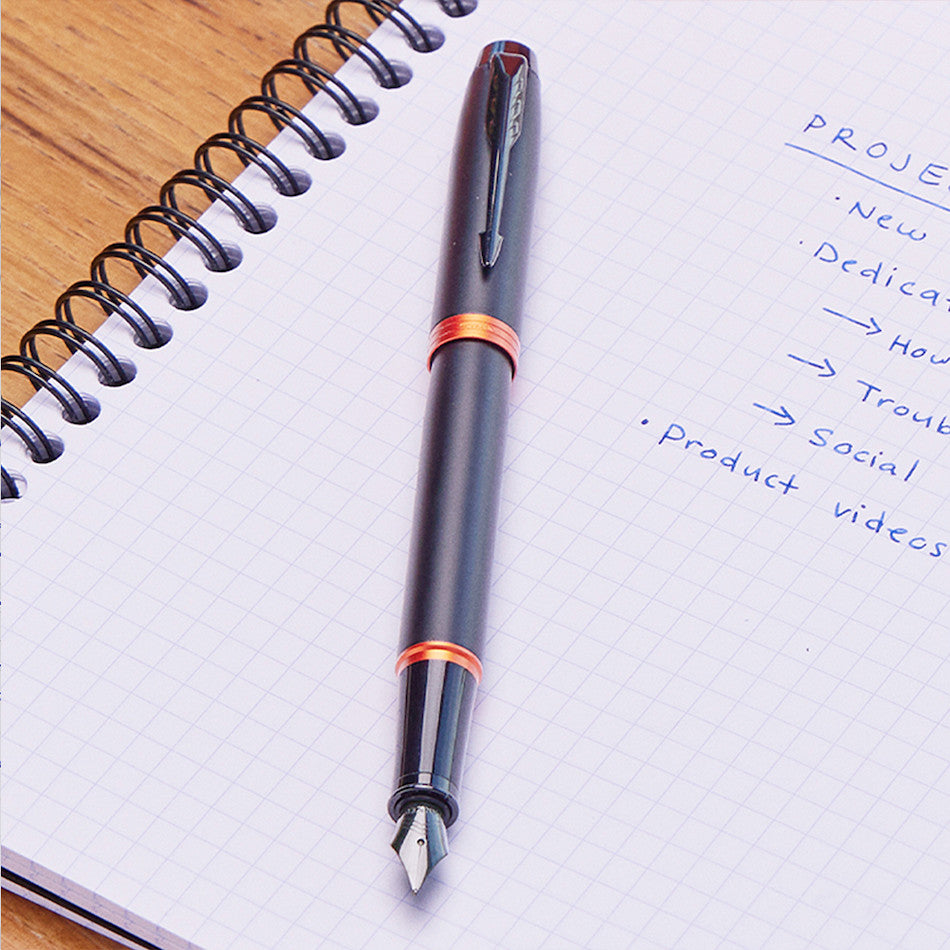 PROJE
· New
· Dedica
→ How
→ Troub
→ Social
· Product videos